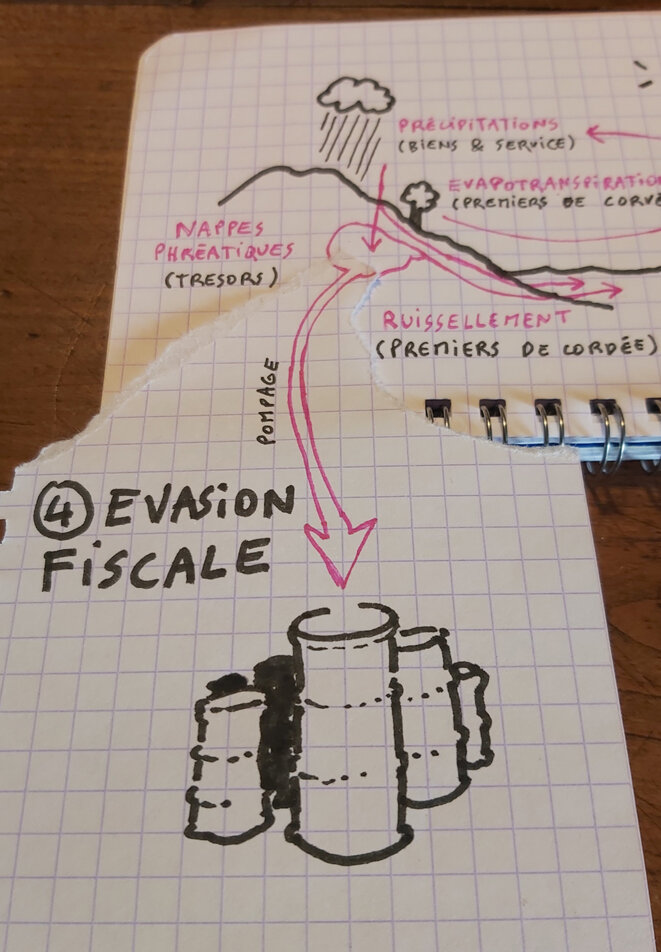 PRÉCIPITATIONS
(BIENS & SERVICE)
EVAPOTRANSPIRATION
(PREMIERS DE CORVÉ
NAPPES
PHRÉATIQUES
(TRESORS)
RUISSELLEMENT
(PREMIERS DE CORDÉE)
POMPAGE
④ EVASION
FISCALE